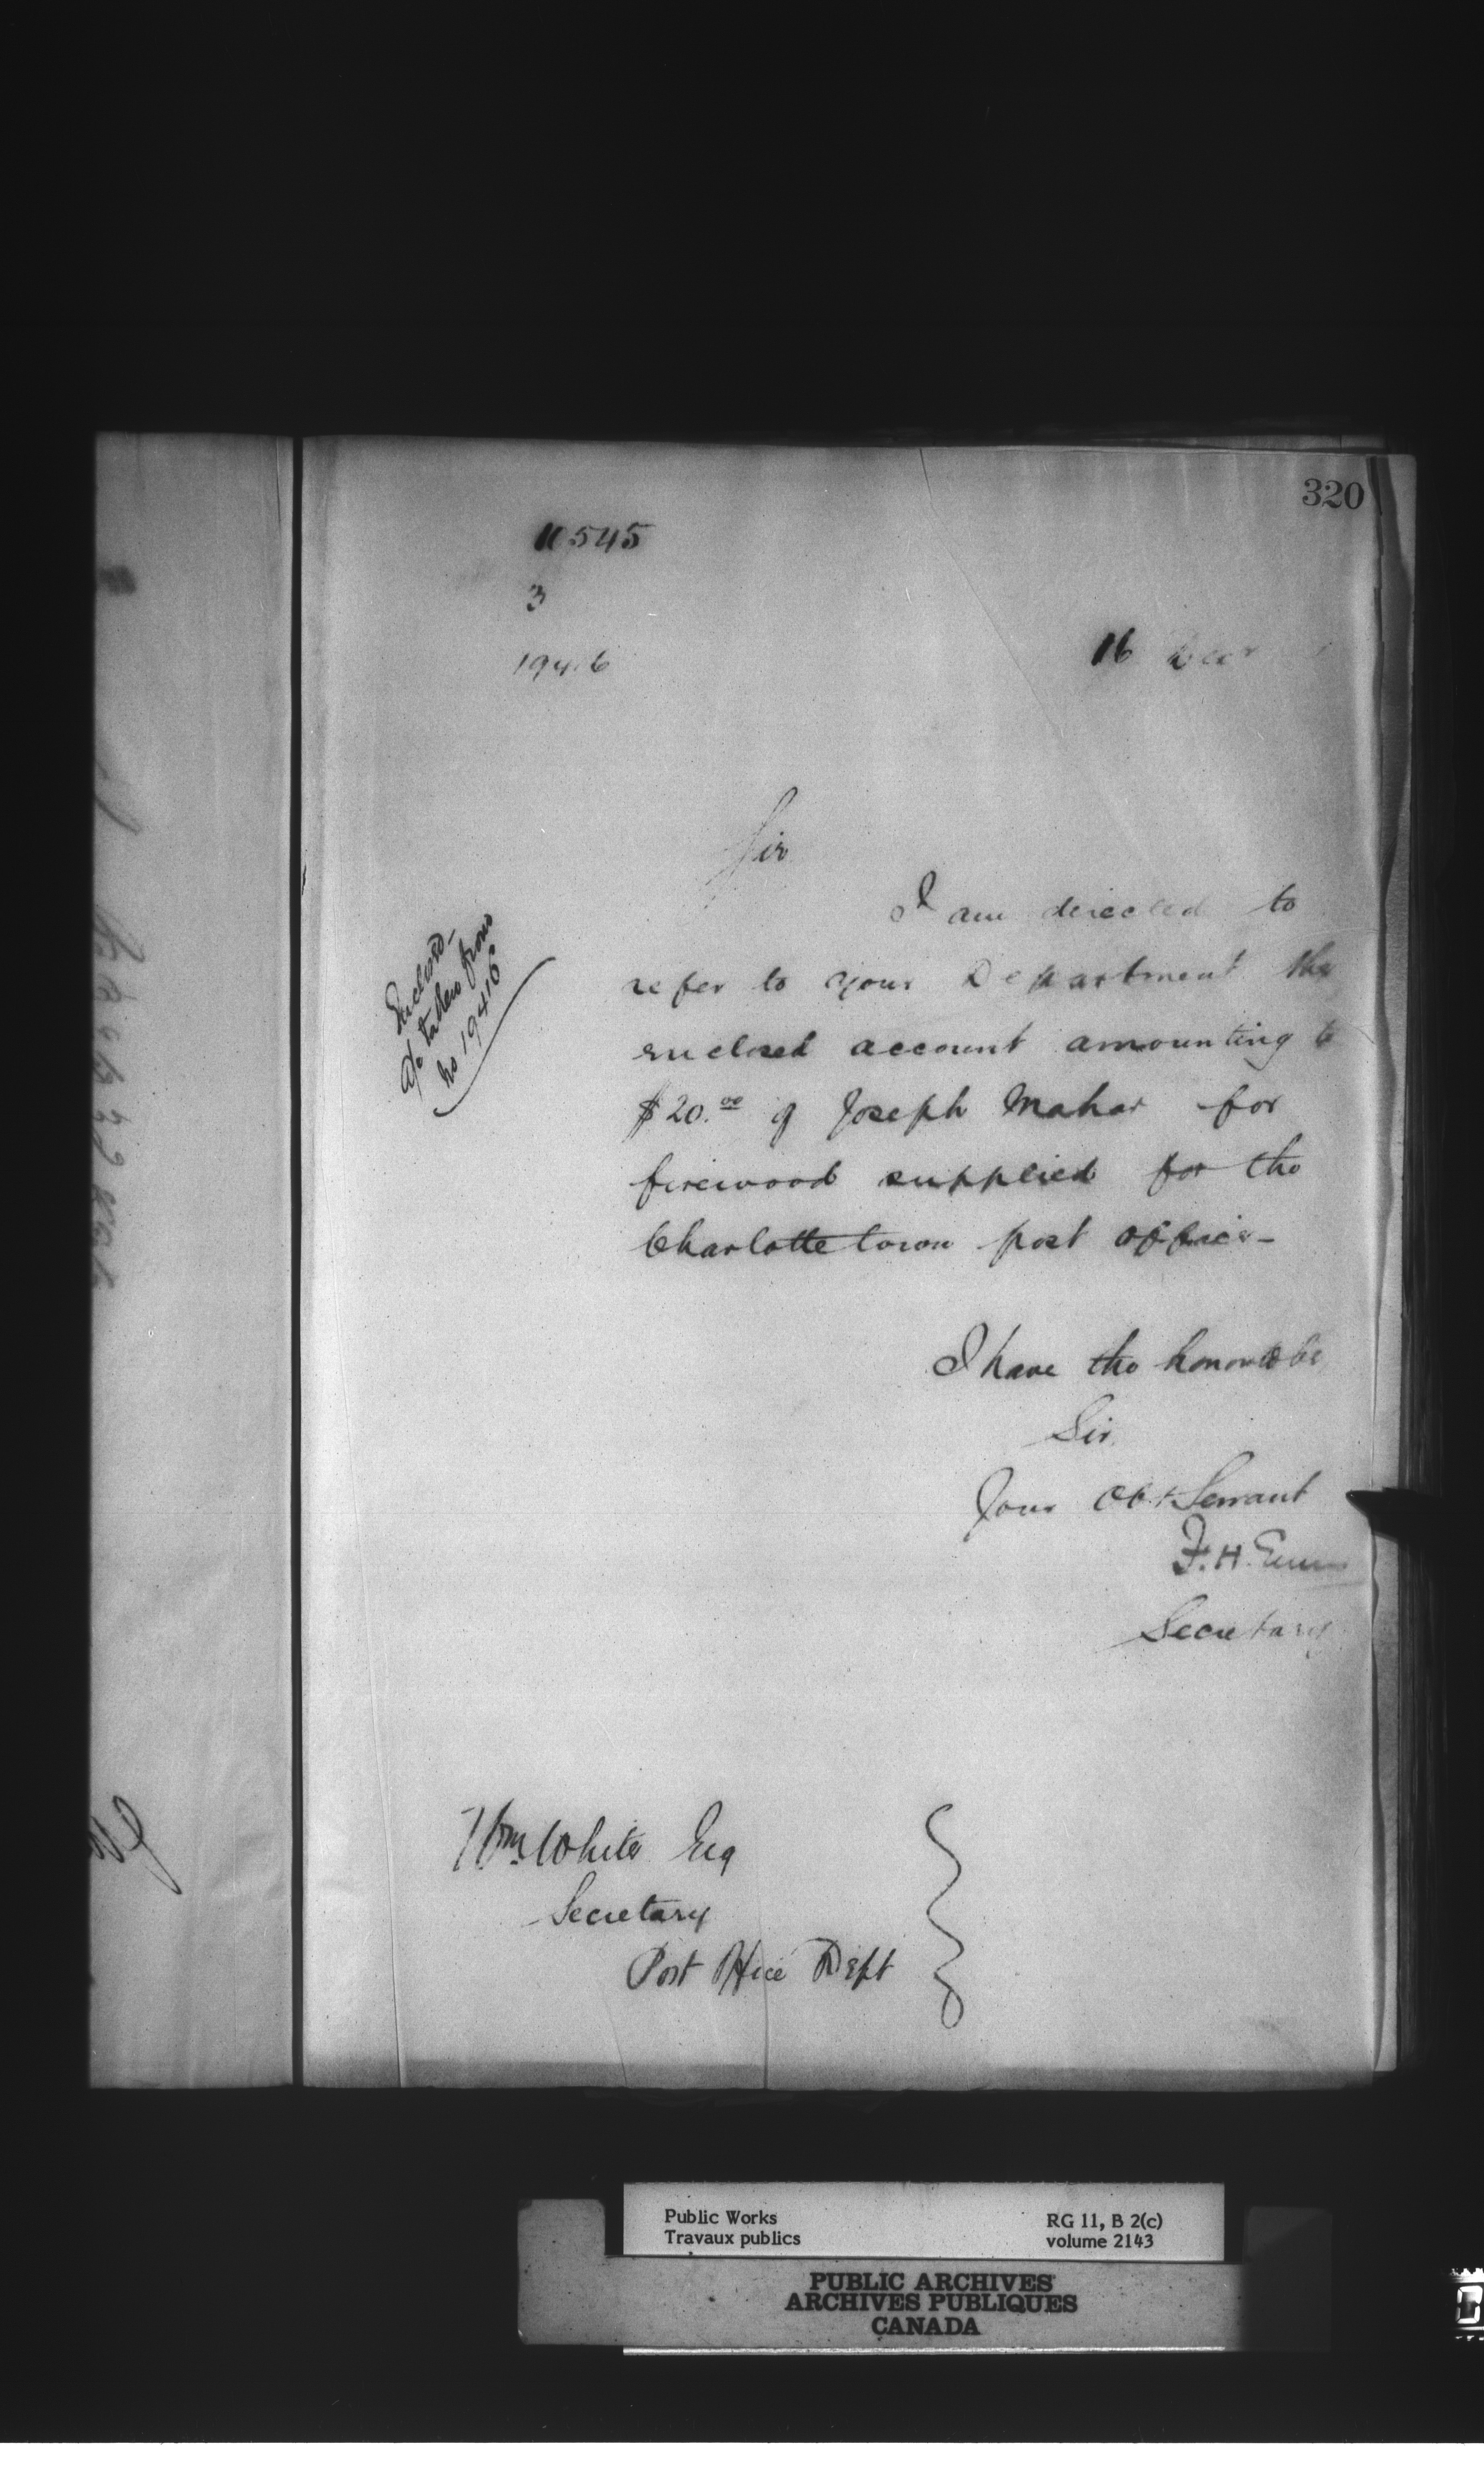 320
11545
3
19416
16 Decr
Sir
I am directed to
refer to your Department the
enclosed account amounting to
$20.00 of Joseph Mahar for
firewood supplied for the
Charlottetown post office-
Enclosd-
a/c taken from
No 19416
I have the honor to be
Sir
Your Obt Servant
F. H. Ennis
Secretary
Wm White Esq
Secretary
Post Office Dept
Public Works
Travaux publics
RG 11, B 2(c)
volume 2143
PUBLIC ARCHIVES
ARCHIVES PUBLIQUES
CANADA